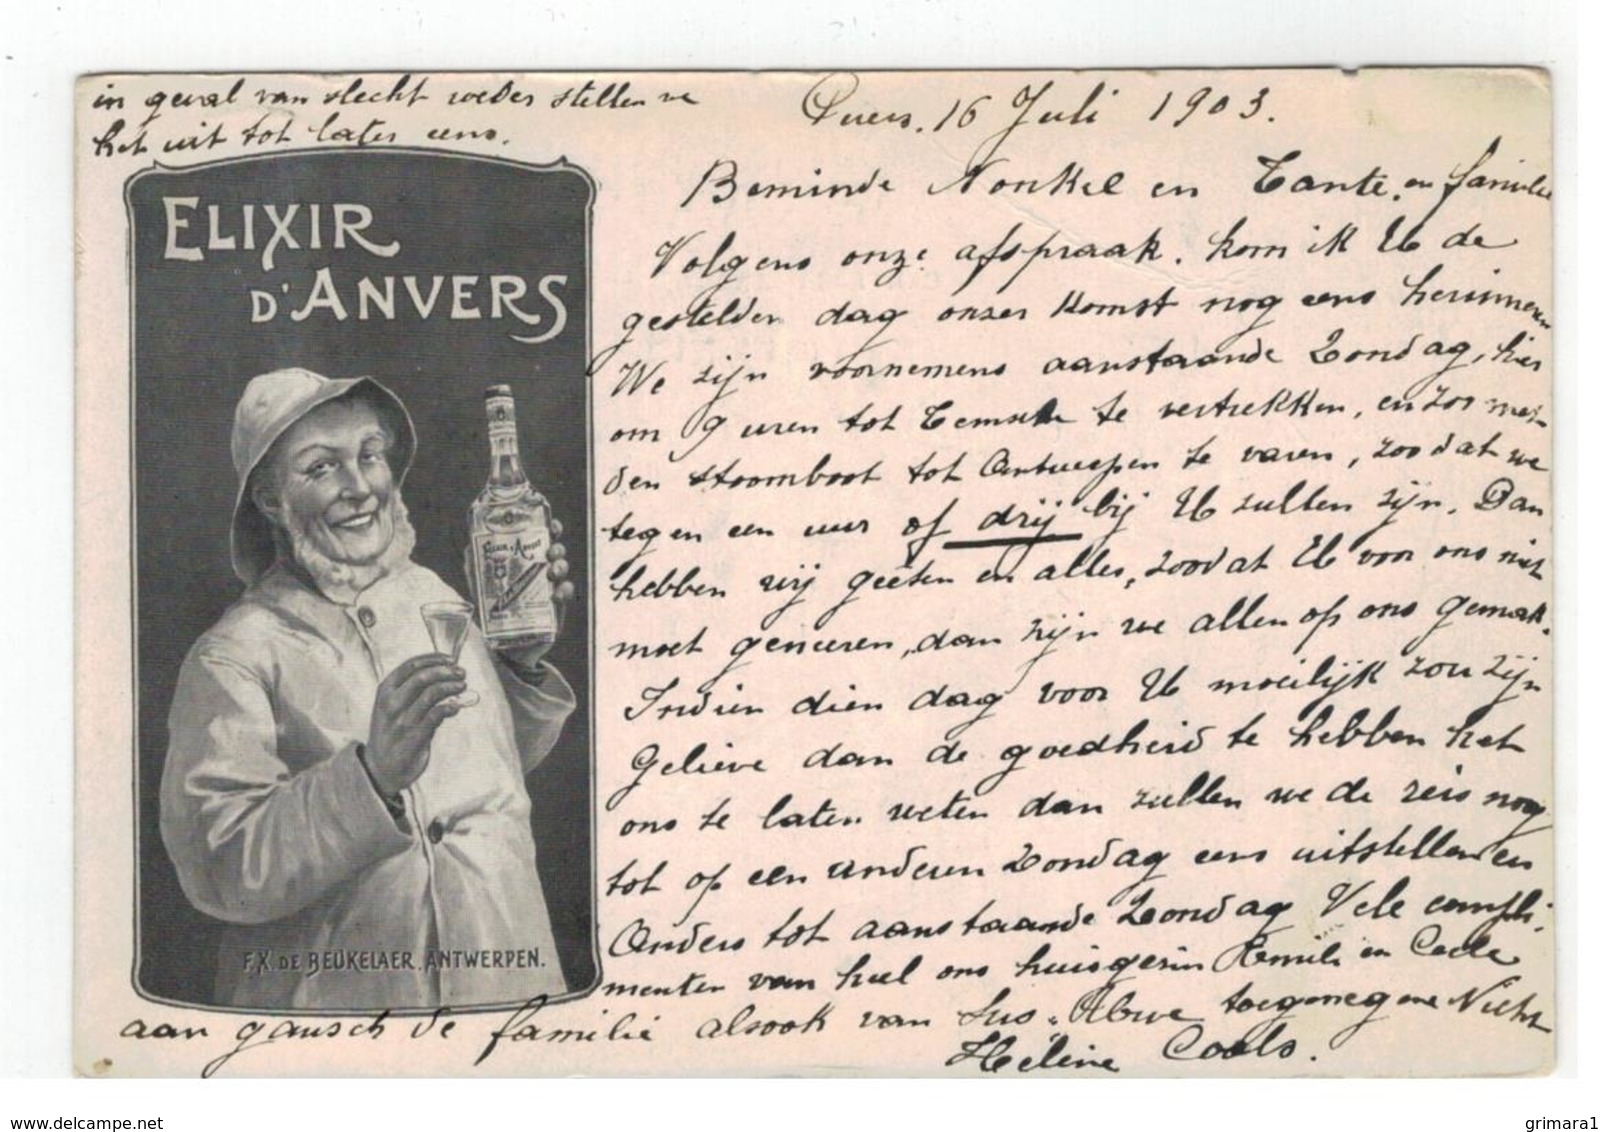 in geval van slecht weder stellen we
het uit tot later eens.
16 Juli 1903.
ELIXIR
D'ANVERS
Beminde Nonkel en Tante. en familie
Volgens onze afspraak. kom ik U de
gestelden dag onzer komst nog eens herinneren
We zijn voornemens aanstaande Zondag, hier
om 9 uren tot Temsche te vertrekken, en zoo met
den stoomboot tot Antwerpen te varen, zoodat we
tegen een uur of drij bij U zullen zijn. Dan
hebben wij geëten en alles, zoodat U voor ons niet
moet geneeren, dan zijn we allen op ons gemak.
Indien dien dag voor U moeilijk zou zijn
Gelieve dan de goedheid te hebben het
ons te laten weten dan zullen we de reis nog
tot op een anderen Zondag eens uitstellen en
Anders tot aanstaande Zondag Vele compli-
menten van heel ons huisgezin en
aan gansch de familie alsook van Uwe toegenegene Nicht
Hélène Cools.
ELIXIR D'ANVERS
F.X. DE BEUKELAER. ANTWERPEN.
www.delcampe.net
grimara1